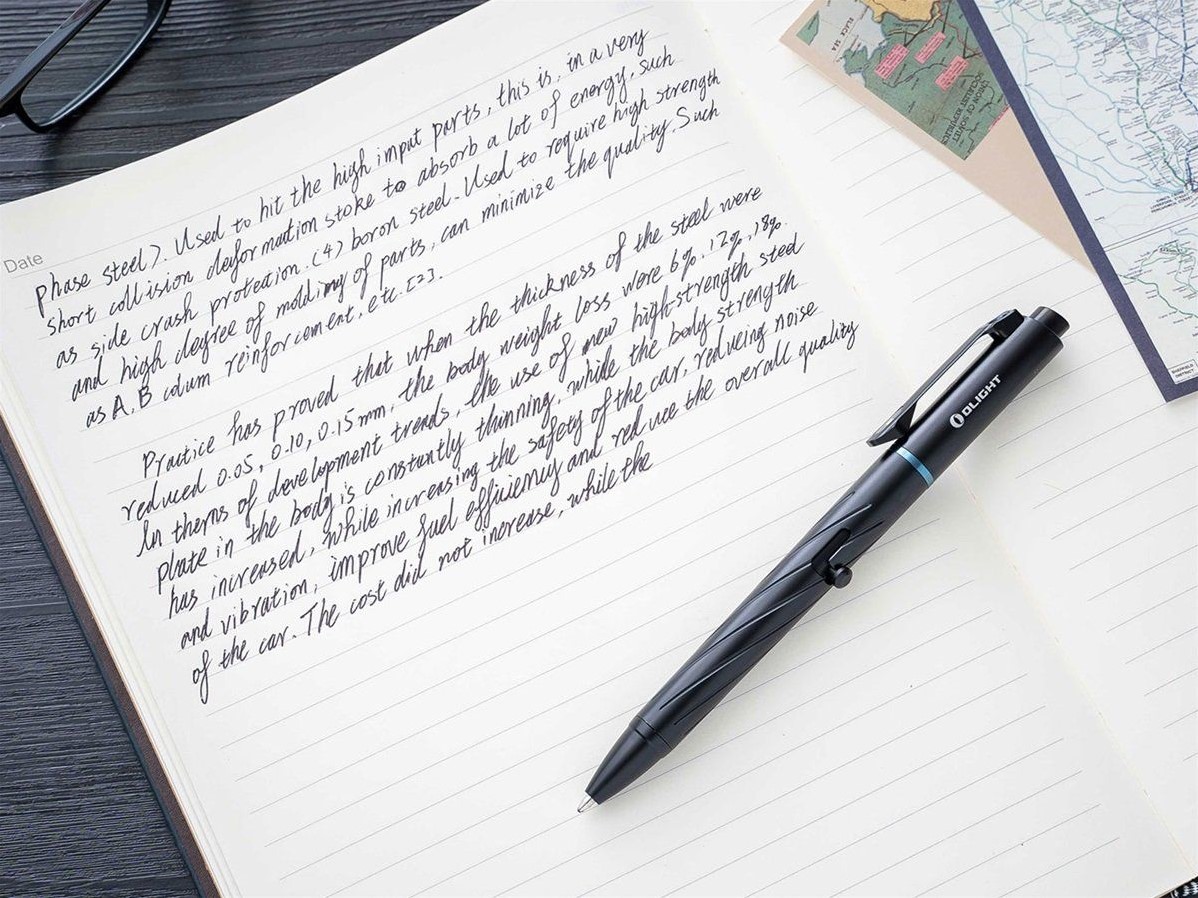 Date
phase steel). Used to hit the high imput parts, this is, in a very
short collision deformation stoke to absorb a lot of energy, such
as side crash proteation. (4) boron steel. Used to require high strength
and high degree of molding of parts, can minimize the quality. Such
as A, B colum reinforcement, etc. [2].
Practice has proved that when the thickness of the steel were
reduced 0.05, 0.10, 0.15mm, the body weight loss were 6%, 12%, 18%.
In therns of development trends, the use of new high-strength steel
plate in the body is constantly thinning, while the body strength
has increased, while increasing the safety of the car, reducing noise
and vibration, improve fuel efficiency and reduce the overall quality
of the car. The cost did not increase, while the
OLIGHT
BLACK SEA
UNION OF SOVIET
SOCIALIST REPUBLICS